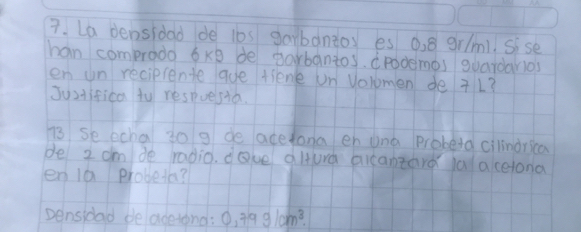 7. La densidad de los garbanzos es 0,8 gr/ml. Si se
han comprado 6 kg de garbanzos. ¿Podemos guardarlos
en un recipiente que tiene un Volumen de 7 L?
Justifica tu respuesta.
13 Se echa 20 g de acetona en una Probeta cilindrica
de 2 cm de radio. ¿Que altura alcanzará la acetona
en la Probeta?
Densidad de acetona: 0,79 g/cm³.